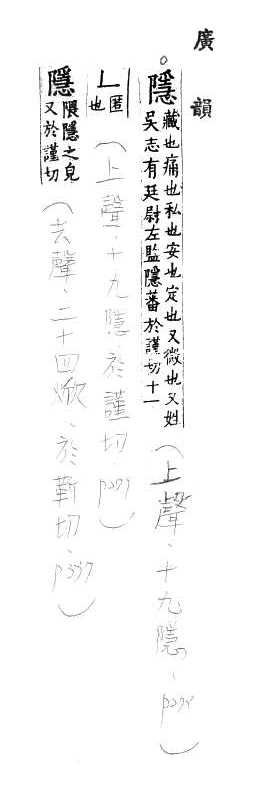 廣韻
。隱藏也痛也私也安也定也又微也又姓吳志有廷尉左監隱蕃於謹切十一(上聲、十九隱、
乚匿也(上聲、十九隱、於謹切、
隱隈隱之皃又於謹切(去聲、二十四焮、於靳切、p397)